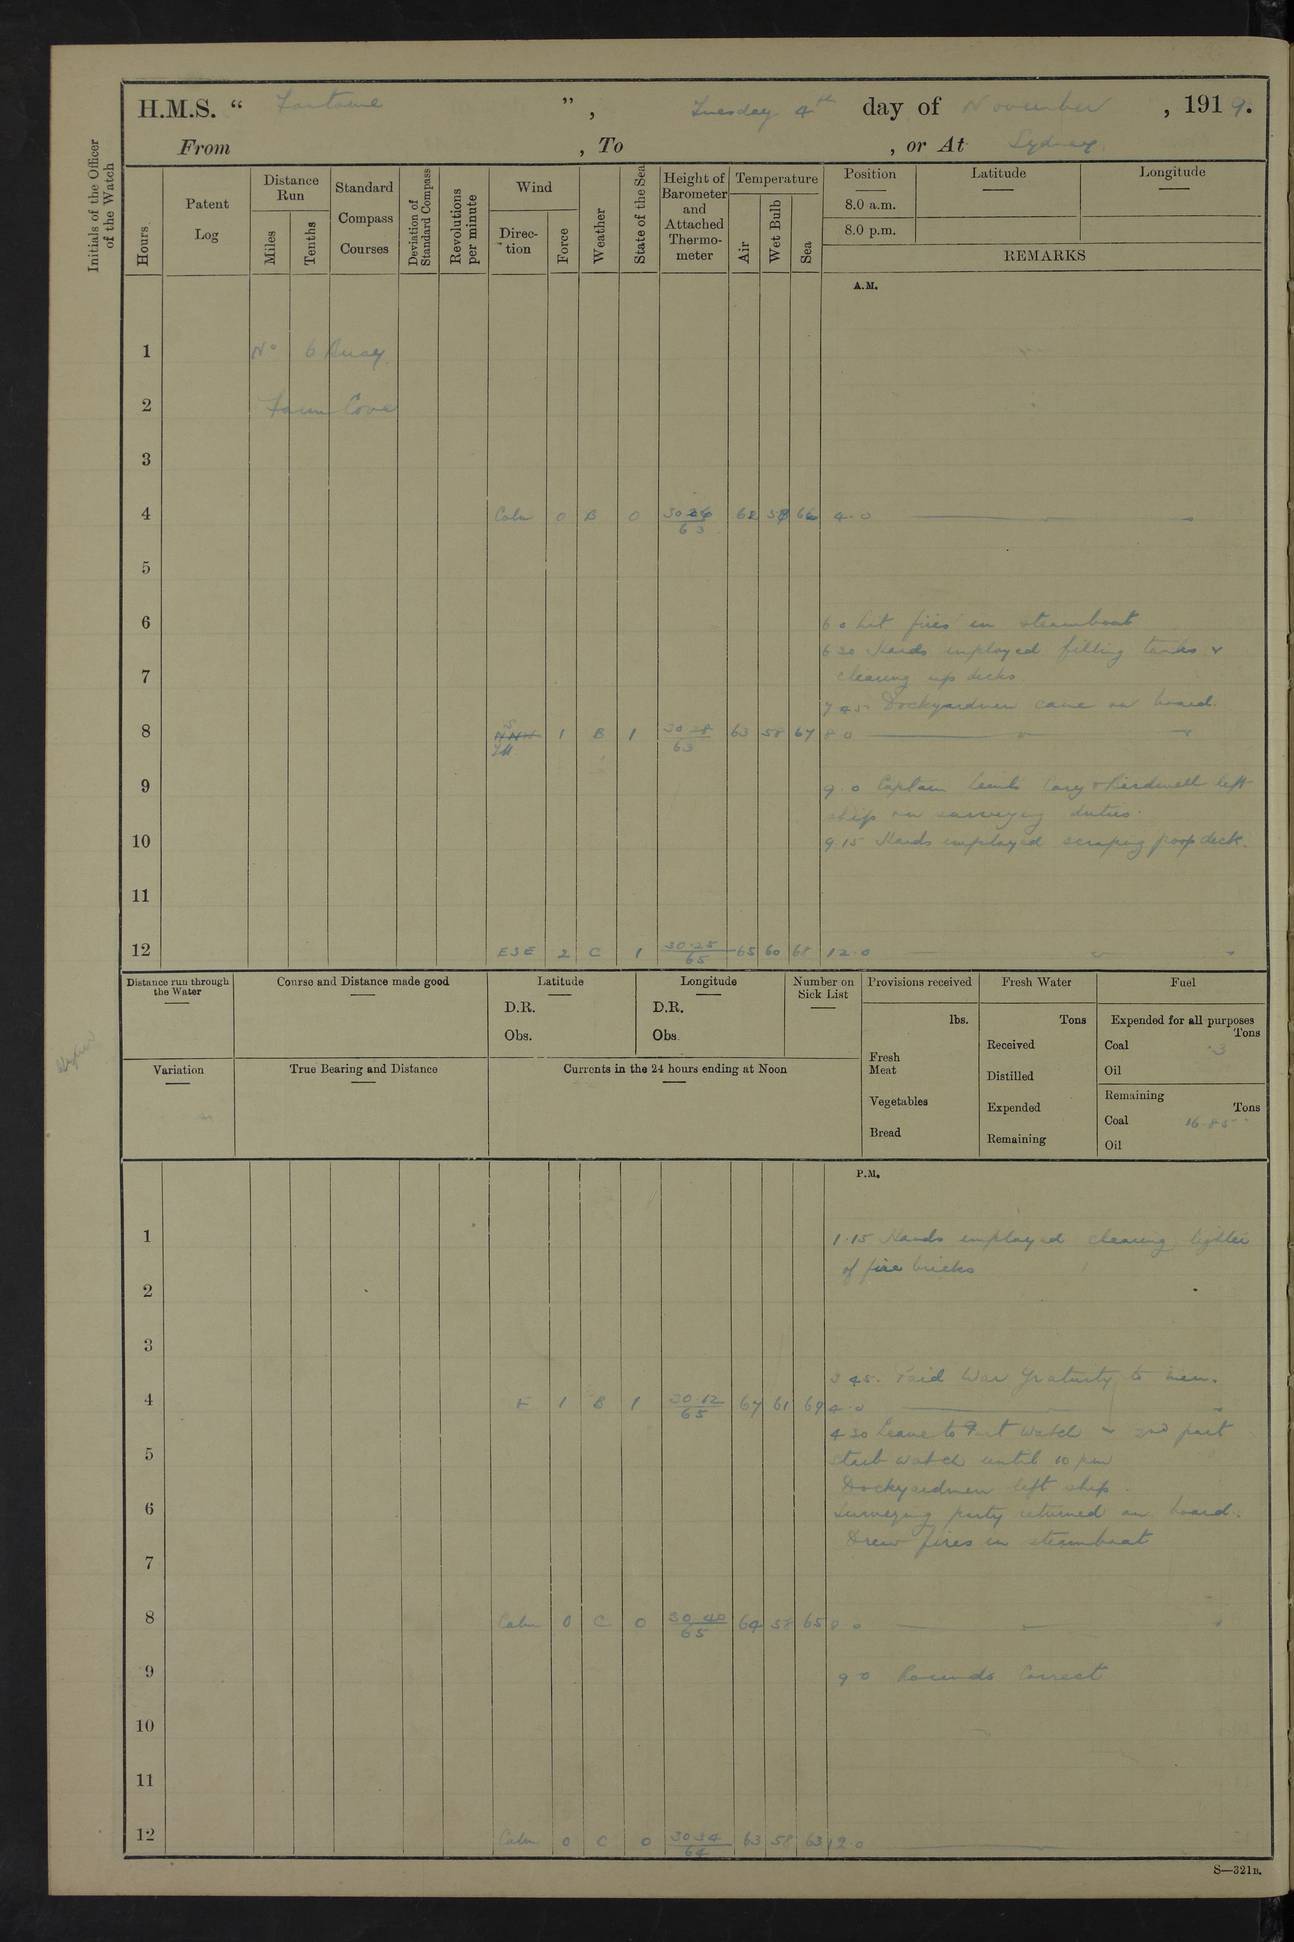 H.M.S. “ Fantome ”, Tuesday 4th day of November, 1919.
From , To , or At Sydney
Initials of the Officer of the Watch
Hours
Patent Log
Distance Run
Miles
Tenths
Standard Compass Courses
Deviation of Standard Compass
Revolutions per minute
Wind
Direction
Force
Weather
State of the Sea
Height of Barometer and Attached Thermometer
Temperature
Air
Wet Bulb
Sea
Position
8.0 a.m.
8.0 p.m.
Latitude
Longitude
REMARKS
A.M.
1 No 6 Buoy
2 Farm Cove
3
4 Calm 0 B 0 63 62 66 4.0
5
6 6 0 Lit fires in steamboat
6 30 Hands employed filling tanks &
7 clearing up decks
7 45 Dockyardmen came on board.
8 1 B 1 30 28 63 63 58 67 8 0
9 9.0 Captain Lieuts Cary & Bardwell left
ship on surveying duties.
10 9.15 Hands employed scraping poop deck.
11
12 ESE 2 C 1 30.25 65 65 60 68 12.0
Distance run through the Water
Course and Distance made good
Latitude
D.R.
Obs.
Longitude
D.R.
Obs.
Number on Sick List
Provisions received
lbs.
Fresh Meat
Vegetables
Bread
Fresh Water
Tons
Received
Distilled
Expended
Remaining
Fuel
Expended for all purposes
Tons
Coal .3
Oil
Remaining
Tons
Coal 16.85
Oil
Variation
True Bearing and Distance
Currents in the 24 hours ending at Noon
P.M.
1 1.15 Hands employed clearing lighter
of fire bricks
2
3
3 45. Paid War Gratuity to men.
4 E 1 B 1 30.12 65 67 61 69 4.0
4 30 Leave to Port Watch & 2nd part
5 starb watch until 10 pm
Dockyardmen left ship.
6 Surveying party returned on board.
Drew fires in steamboat
7
8 Calm 0 C 0 30 40 65 64 58 65 8 0
9 9 0 Rounds Correct
10
11
12 Calm 0 C 0 30 34 64 63 58 63 12.0
S—321B.